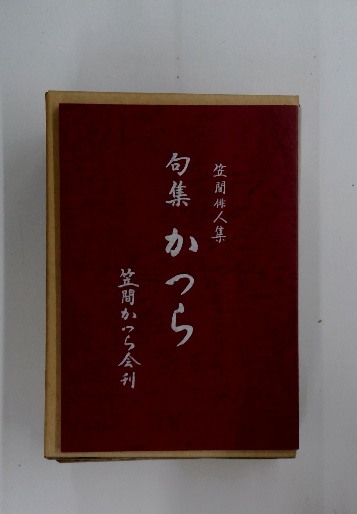 笠間俳人集
句集 かつら
笠間かつら会刊